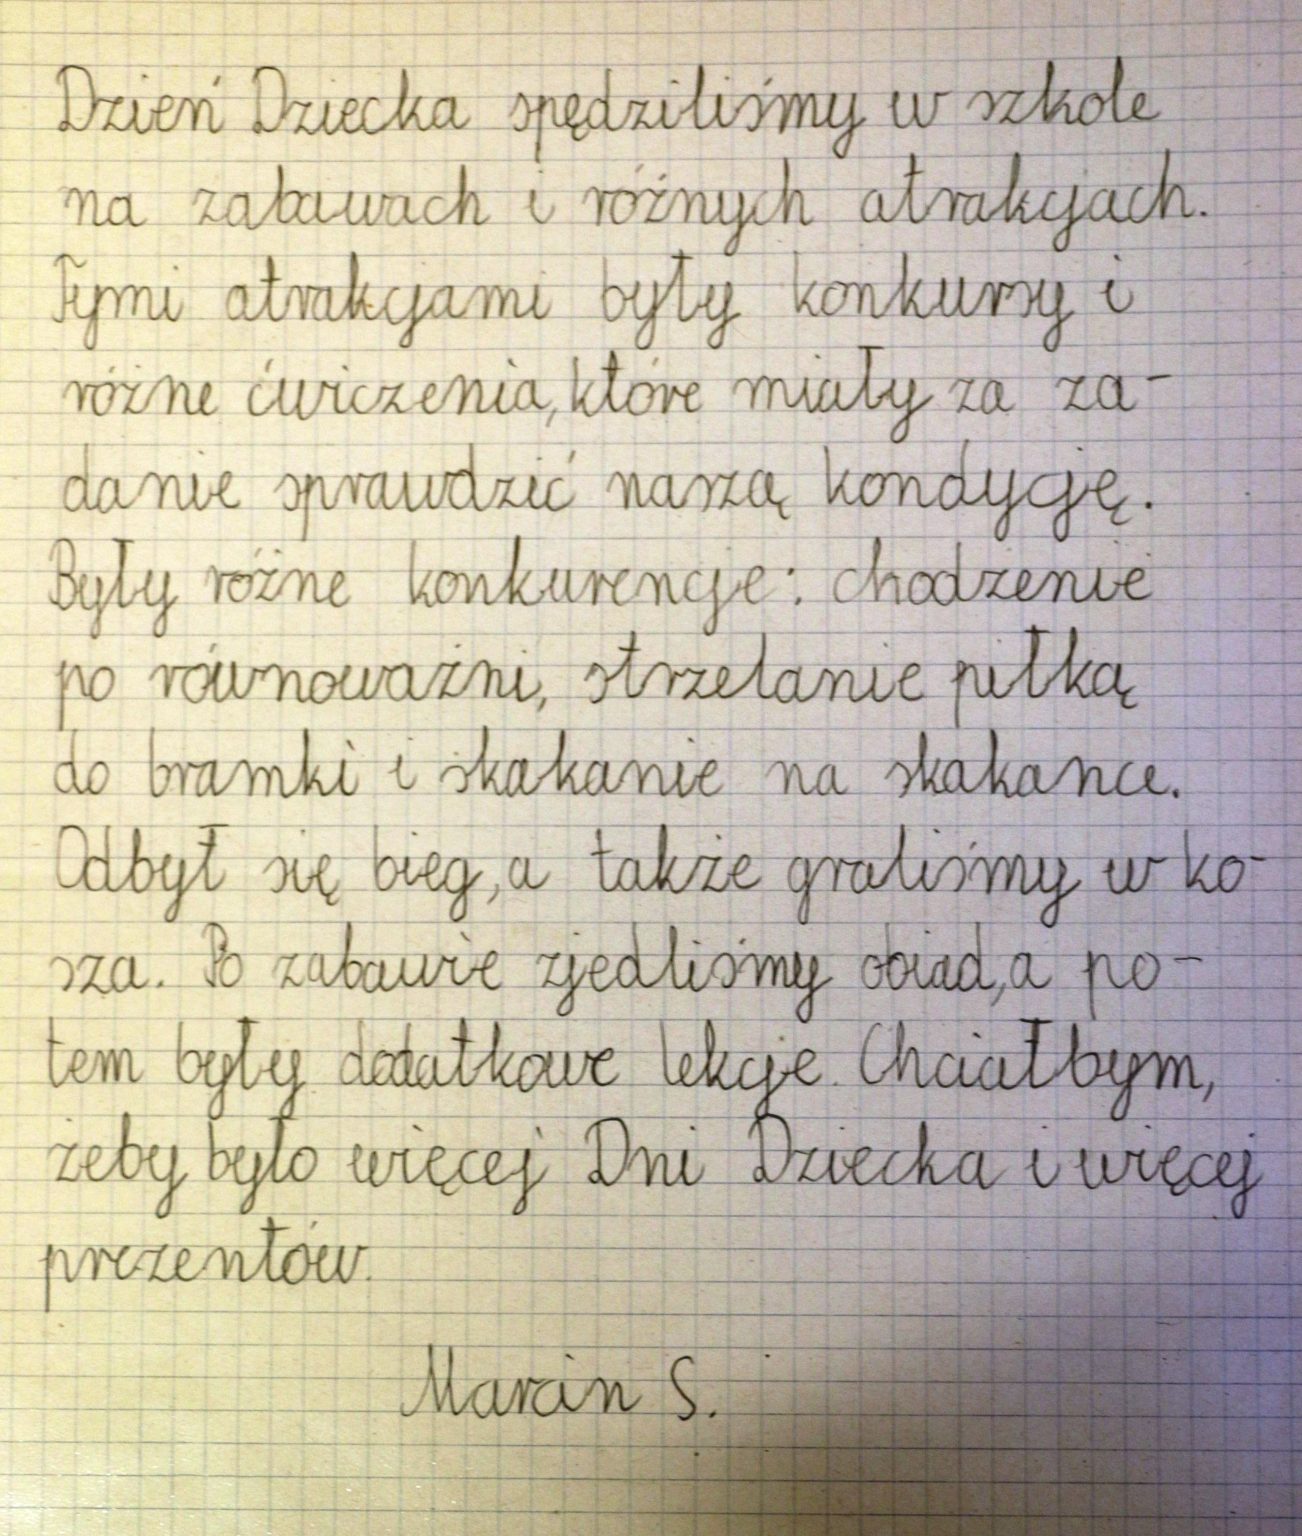 Dzień Dziecka spędziliśmy w szkole
na zabawach i różnych atrakcjach.
Tymi atrakcjami były konkursy i
różne ćwiczenia, które miały za za-
danie sprawdzić naszą kondycję.
Były różne konkurencje: chodzenie
po równoważni, strzelanie piłką
do bramki i skakanie na skakance.
Odbył się bieg, a także graliśmy w ko-
sza. Po zabawie zjedliśmy obiad, a po-
tem były dodatkowe lekcje. Chciałbym,
żeby było więcej Dni Dziecka i więcej
prezentów.
Marcin S.